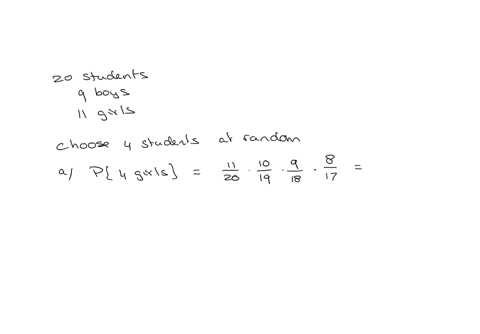 20 students
9 boys
11 girls
choose 4 students at random
a/ P{4 girls} = 11/20 · 10/19 · 9/18 · 8/17 =